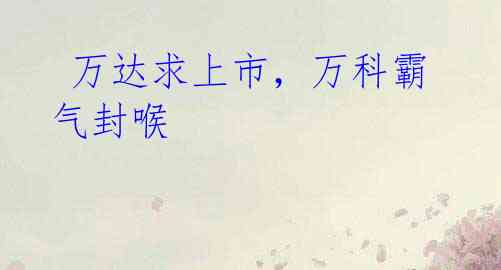 万达求上市，万科霸
气封喉